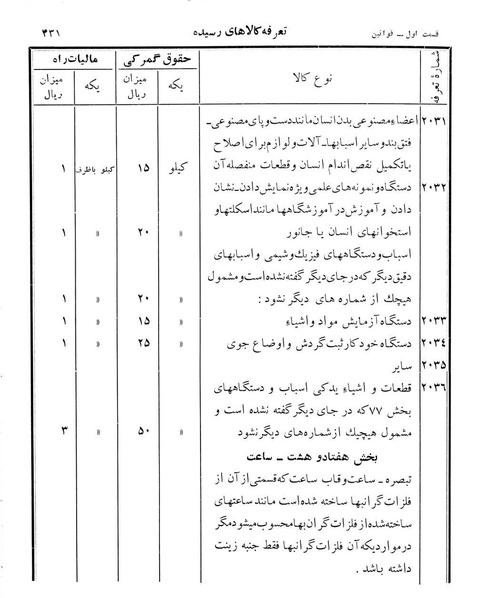 قسمت اول ــ قوانین تعرفه کالاهای رسیده ۴۳۱
شمارهٔ تعرفه نوع کالا حقوق گمرکی مالیات راه
یکه میزان ریال یکه میزان ریال
۲۰۳۱ اعضاء مصنوعی بدن انسان مانند دست و پای مصنوعی ــ
فتق بند و سایر اسبابها ــ آلات و لوازم برای اصلاح
یا تکمیل نقص اندام انسان و قطعات منفصله آن کیلو ۱۵ کیلو باظرف ۱
۲۰۳۲ دستگاه و نمونه های علمی ویژه نمایش دادن ــ نشان
دادن و آموزش در آموزشگاهها مانند اسکلتها و
استخوانهای انسان یا جانور » ۲۰ » ۱
اسباب و دستگاههای فیزیک و شیمی و اسبابهای
دقیق دیگر که در جای دیگر گفته نشده است و مشمول
هیچک از شماره های دیگر نشود : » ۲۰ » ۱
۲۰۳۳ دستگاه آزمایش مواد و اشیاء » ۱۵ » ۱
۲۰۳۴ دستگاه خودکار ثبت گردش و اوضاع جوی » ۲۵ » ۱
۲۰۳۵ سایر
۲۰۳۶ قطعات و اشیاء یدکی اسباب و دستگاههای
بخش ۷۷ که در جای دیگر گفته نشده است و
مشمول هیچیک از شماره های دیگر نشود » ۵۰ » ۳
بخش هفتاد و هشت ــ ساعت
تبصره ــ ساعت و قاب ساعت که قسمتی از آن از
فلزات گرانبها ساخته شده است مانند ساعتهای
ساخته شده از فلزات گران بها محسوب میشود مگر
در مواردیکه آن فلزات گرانبها فقط جنبه زینت
داشته باشد .